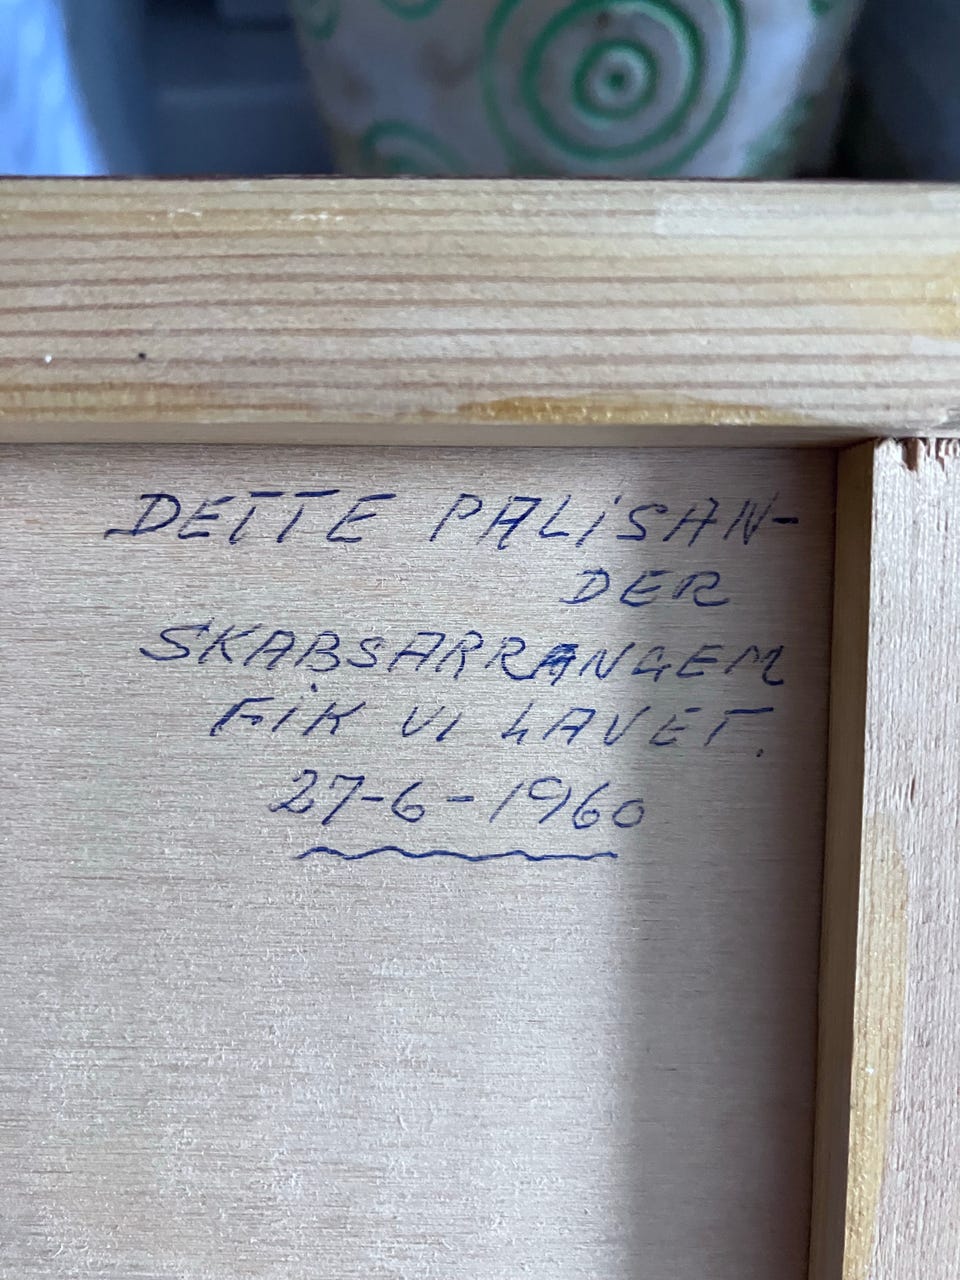 DETTE PALiSAN-
DER
SKABSARRANGEM
FiK VI LAVET.
27-6-1960